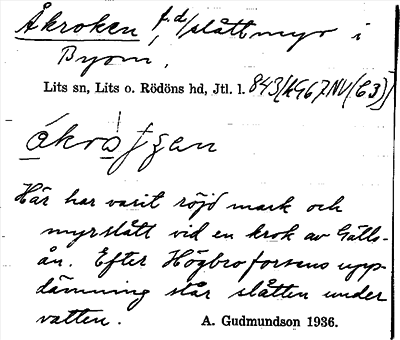 Åkroken f.d. slåttmyr i
Byom,
Lits sn, Lits o. Rödöns hd, Jtl. l. 843/AG67NV(C3)
Här har varit röjd mark och
myrslått vid en krok av Gälls-
ån. Efter Högbroforsens upp-
dämning står slåtten under
vatten.
A. Gudmundson 1936.